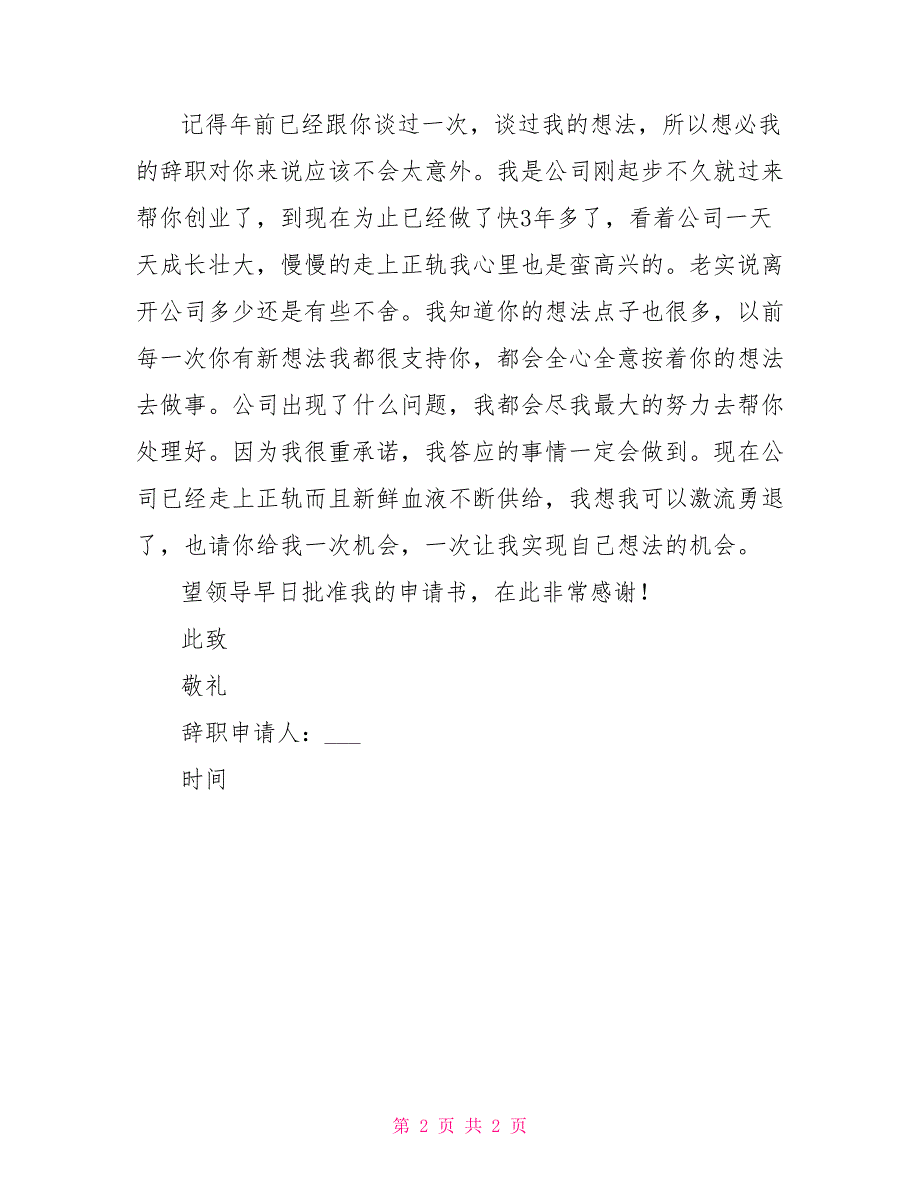 记得年前已经跟你谈过一次，谈过我的想法，所以想必我
的辞职对你来说应该不会太意外。我是公司刚起步不久就过来
帮你创业了，到现在为止已经做了快3年多了，看着公司一天
天成长壮大，慢慢的走上正轨我心里也是蛮高兴的。老实说离
开公司多少还是有些不舍。我知道你的想法点子也很多，以前
每一次你有新想法我都很支持你，都会全心全意按着你的想法
去做事。公司出现了什么问题，我都会尽我最大的努力去帮你
处理好。因为我很重承诺，我答应的事情一定会做到。现在公
司已经走上正轨而且新鲜血液不断供给，我想我可以激流勇退
了，也请你给我一次机会，一次让我实现自己想法的机会。
望领导早日批准我的申请书，在此非常感谢！
此致
敬礼
辞职申请人：___
时间
第 2 页 共 2 页